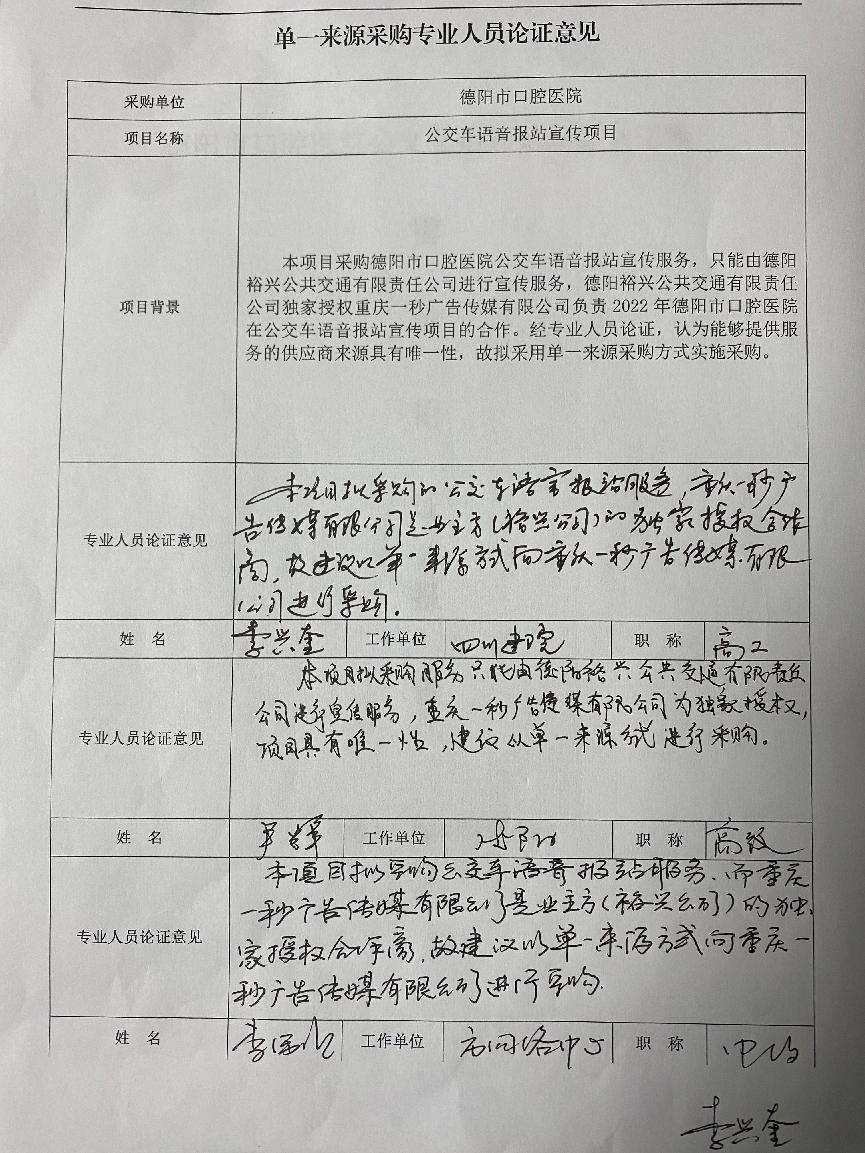 单一来源采购专业人员论证意见
采购单位 德阳市口腔医院
项目名称 公交车语音报站宣传项目
项目背景
本项目采购德阳市口腔医院公交车语音报站宣传服务，只能由德阳
裕兴公共交通有限责任公司进行宣传服务，德阳裕兴公共交通有限责任
公司独家授权重庆一秒广告传媒有限公司负责 2022 年德阳市口腔医院
在公交车语音报站宣传项目的合作。经专业人员论证，认为能够提供服
务的供应商来源具有唯一性，故拟采用单一来源采购方式实施采购。
专业人员论证意见
本项目拟采购的公交车语音报站服务，重庆一秒广
告传媒有限公司是业主方(裕兴公司)的独家授权合作
商，故建议以单一来源方式向重庆一秒广告传媒有限
公司进行采购。
姓 名 李兴奎 工作单位 四川建院 职 称 高工
专业人员论证意见
本项目拟采购服务只能由德阳裕兴公共交通有限责任
公司进行宣传服务，重庆一秒广告传媒有限公司为独家授权，
项目具有唯一性，建议以单一来源方式进行采购。
姓 名 工作单位 职 称 高级
专业人员论证意见
本项目拟采购公交车语音报站服务，而重庆
一秒广告传媒有限公司是业主方(裕兴公司)的独
家授权合作商，故建议以单一来源方式向重庆一
秒广告传媒有限公司进行采购.
姓 名 工作单位 职 称
李兴奎